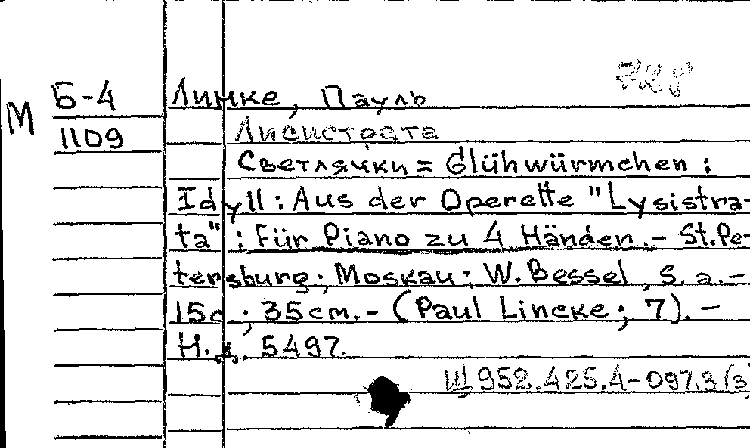 М Б-4 Линке, Пауль
1109 Лисистрата
Светлячки = Glühwürmchen :
Idyll : Aus der Operette "Lysistra-
ta" : Für Piano zu 4 Händen. - St. Pe-
tersburg ; Moskau : W. Bessel, S. a. -
15с ; 35cm. - (Paul Lincke ; 7). -
Н. д. 5497.
Щ952.425.4-097.3(3)